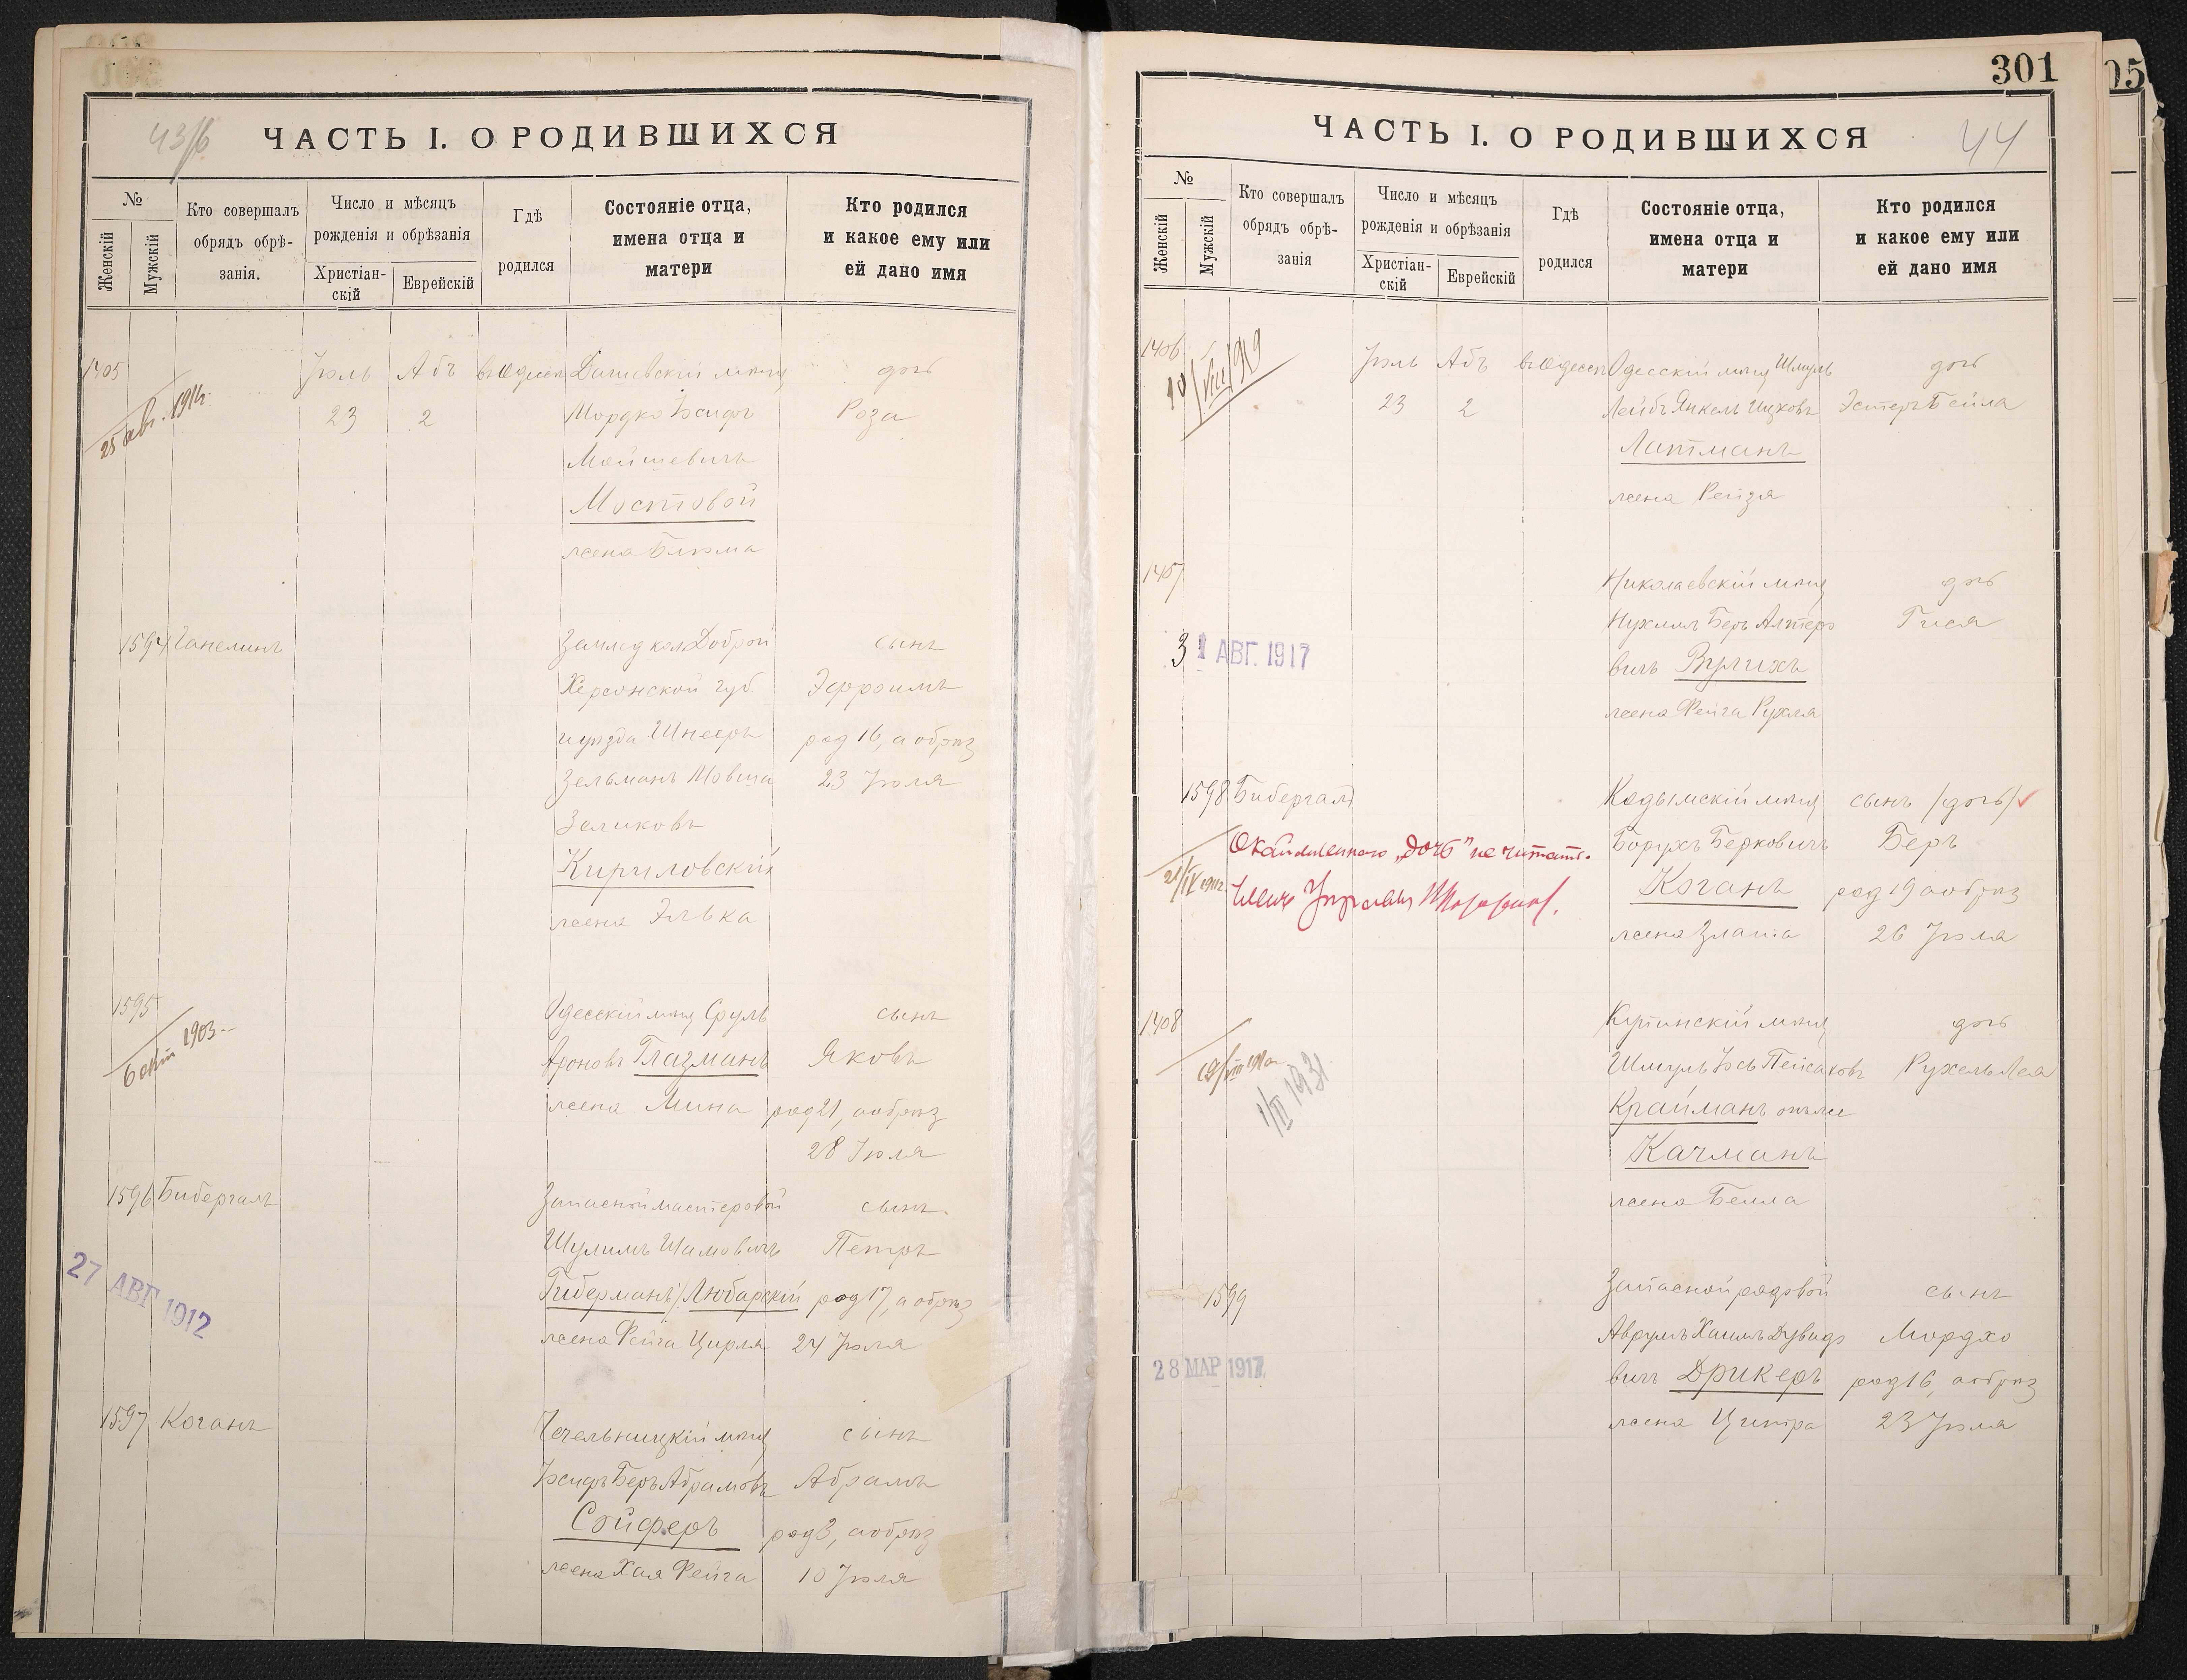 43/б
ЧАСТЬ I. О РОДИВШИХСЯ
№
Женскій
Мужскій
Кто совершалъ
обрядъ обрѣ-
занія.
Число и мѣсяцъ
рожденія и обрѣзанія
Христіан-
скій
Еврейскій
Гдѣ
родился
Состояніе отца,
имена отца и
матери
Кто родился
и какое ему или
ей дано имя
1405
25 авг. 1914.
Іюль Абъ въ Одессѣ мѣщ дочь
23 2 Мордко Іосифъ Роза
Мойшевичъ
Мостовой
жена Блюма
1594 Ганелинъ кол Доброй сынъ
Херсонской губ. Эфроимъ
и уѣзда Шнееръ род 16, а обрѣз
Зельманъ Мовша 23 Іюля
Зеликовъ
Кириловскій
жена Элька
1595 Одесскій мѣщ Сруль сынъ
6 1903
Ароновъ Глазманъ Яковъ
жена Мина род 21, а обрѣз
28 Іюля
1596 Бибергалъ Запасной мастеровой сынъ
Шулимъ Шамовичъ Петръ
27 АВГ 1912
Гиберманъ/Любарскій род 17, а обрѣз
жена Фейга Цирля 24 Іюля
1597 Коганъ Чечельницкій мѣщ сынъ
Іосифъ Беръ Абрамовъ Абрамъ
Сойферъ род 3, а обрѣз
жена Хая Фейга 10 Іюля
301
05
ЧАСТЬ I. О РОДИВШИХСЯ
44
№
Женскій
Мужскій
Кто совершалъ
обрядъ обрѣ-
занія
Число и мѣсяцъ
рожденія и обрѣзанія
Христіан-
скій
Еврейскій
Гдѣ
родился
Состояніе отца,
имена отца и
матери
Кто родился
и какое ему или
ей дано имя
1406
10/VIII 1919
Іюль Абъ въ Одессѣ Одесскій мѣщ Шмуль дочь
23 2 Лейбъ Янкель Ицковъ Эстеръ Бейла
Лапманъ
жена Рейзя
1407 Николаевскій мѣщ дочь
Нухимъ Беръ Алтеро Гися
31 АВГ. 1917
вичъ Вулихъ
жена Фейга Рухля
1598 Бибергалъ Кодымскій мѣщ сынъ /дочь/
Окаймленнаго „дочь" не читать.
Борухъ Берковичъ Беръ
21/IX
Членъ Управы
Коганъ род 19 а обрѣз
жена Злата 26 Іюля
1408 Купинскій мѣщ дочь
Шмуль Іось Пейсаховъ Рухель Лея
1/II 1931.
Крайманъ онъ же
Качманъ
жена Бейла
1599 Запасной рядовой сынъ
Аврумъ Хаимъ Дувидо Мордхо
28 МАР 1917.
вичъ Дрикеръ род 16, а обрѣз
жена Ципра 23 Іюля